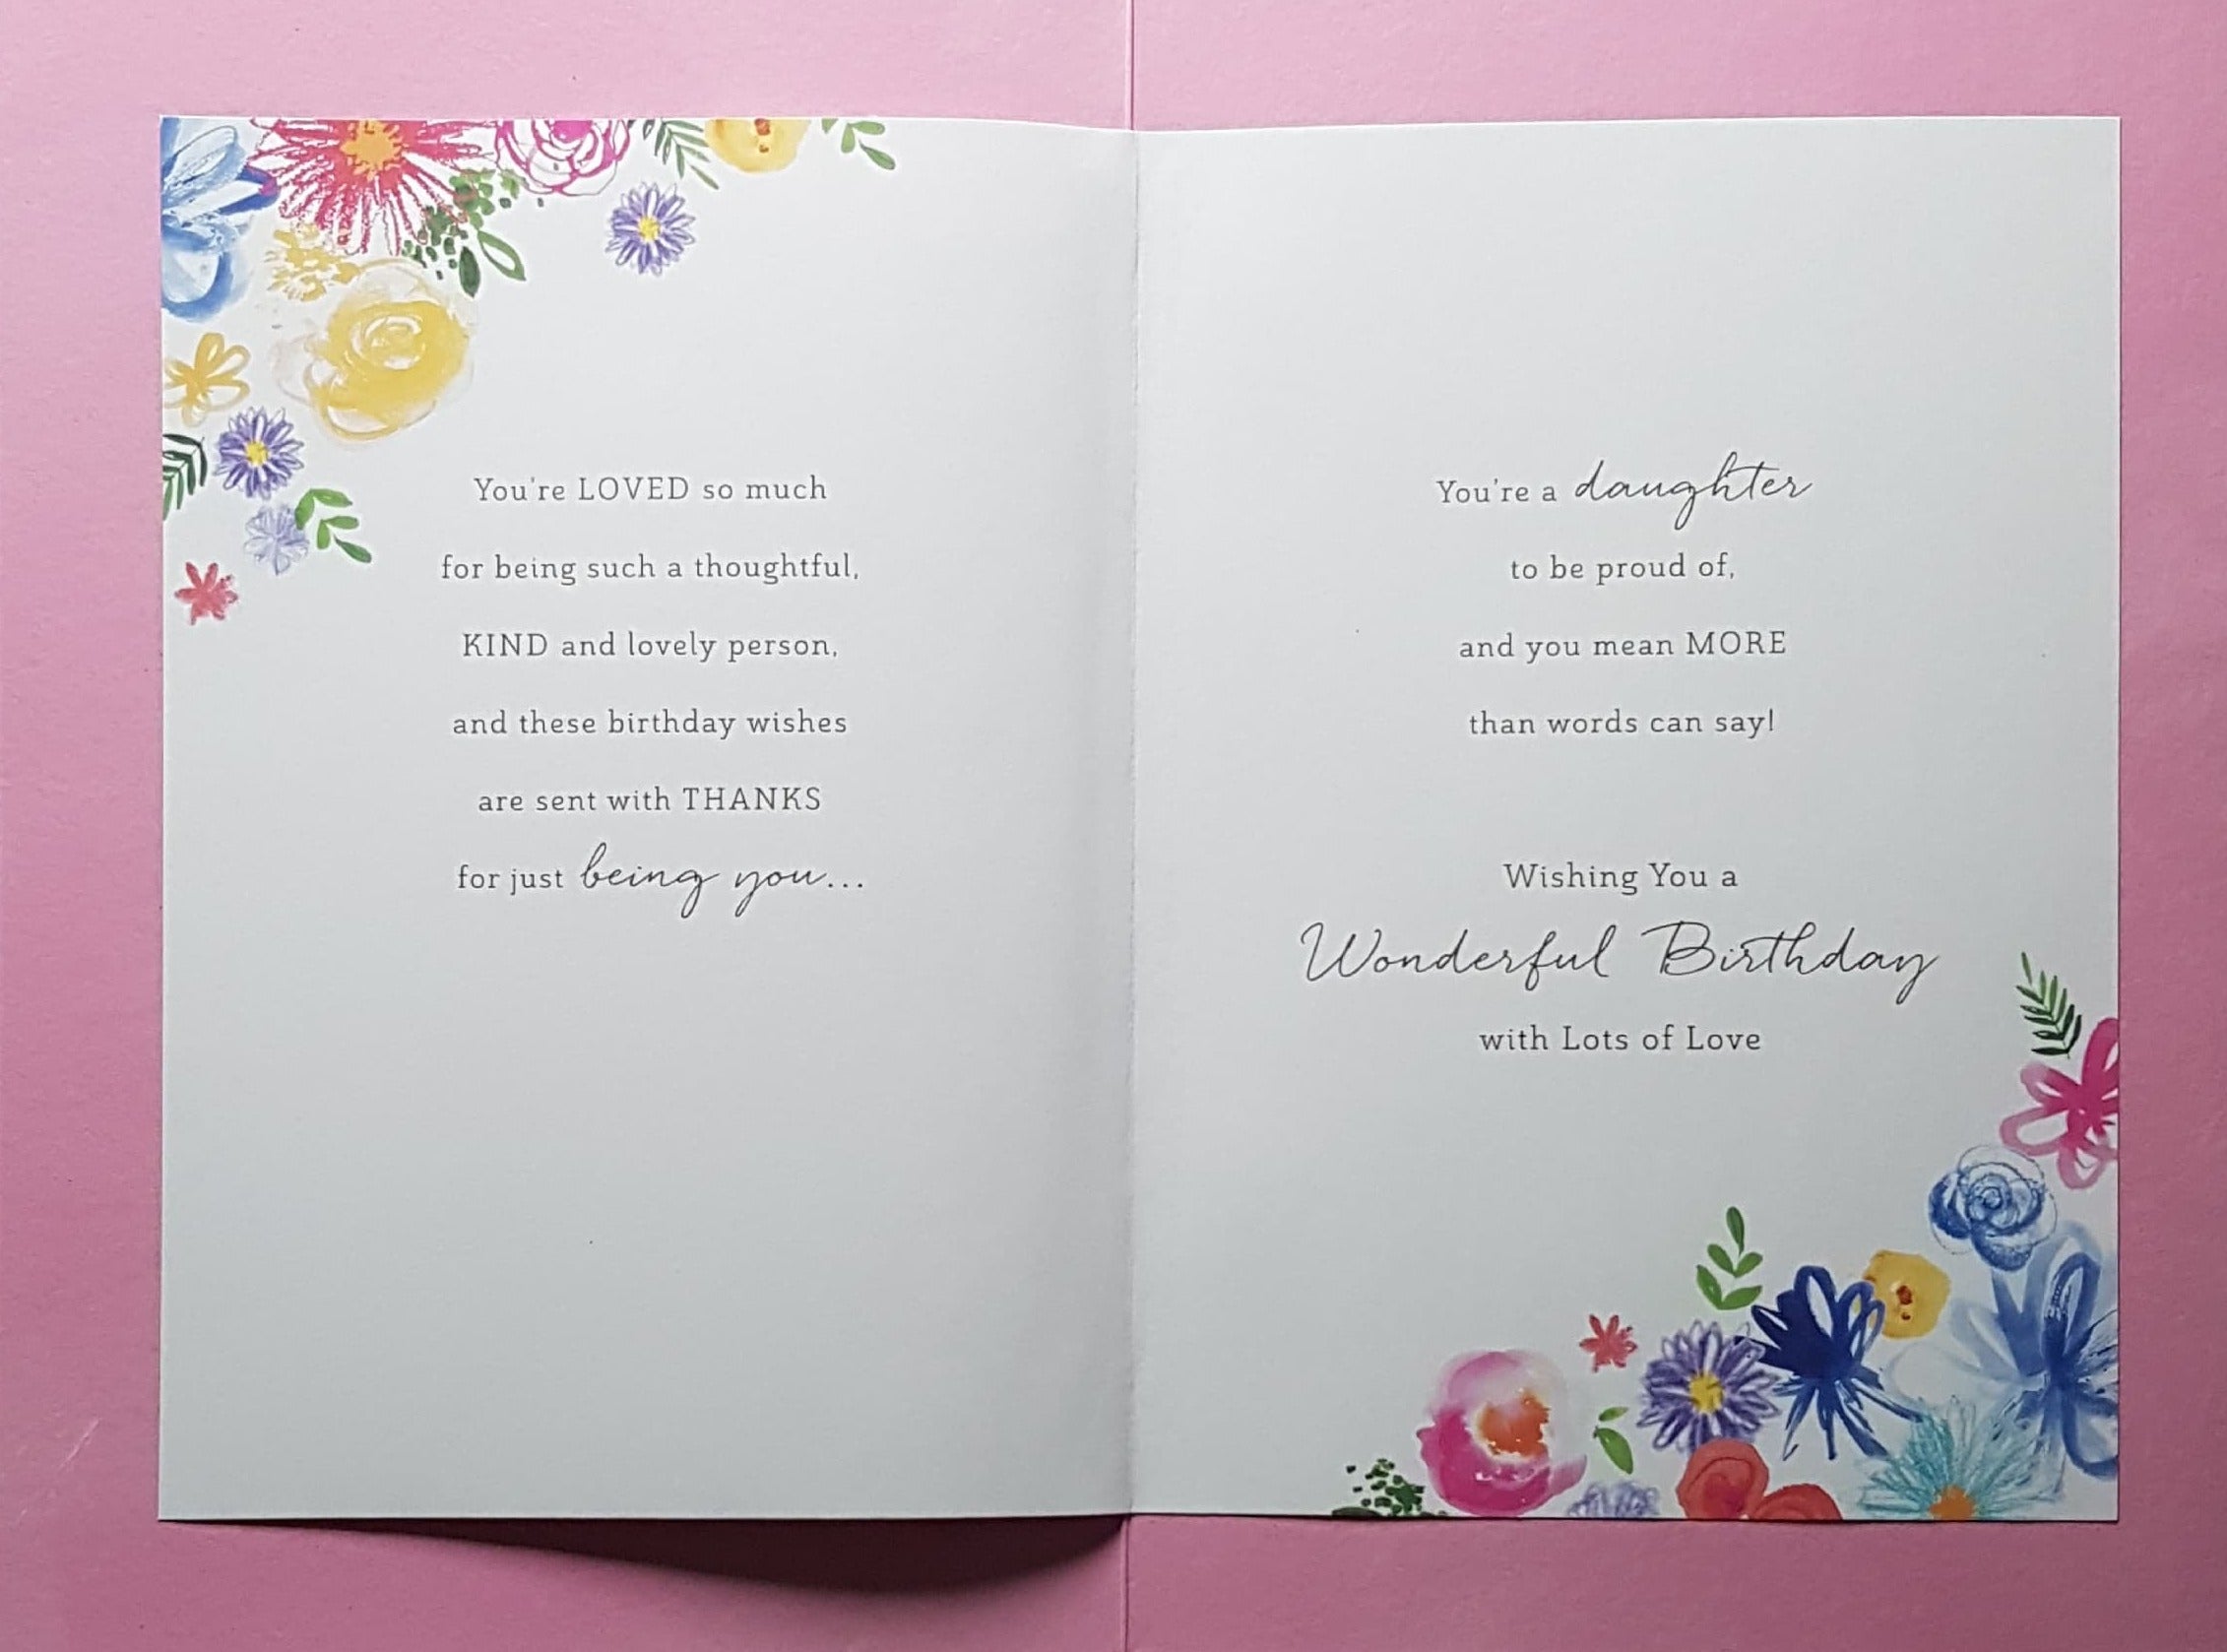 You're LOVED so much
for being such a thoughtful,
KIND and lovely person,
and these birthday wishes
are sent with THANKS
for just being you...
You're a daughter
to be proud of,
and you mean MORE
than words can say!
Wishing You a
Wonderful Birthday
with Lots of Love